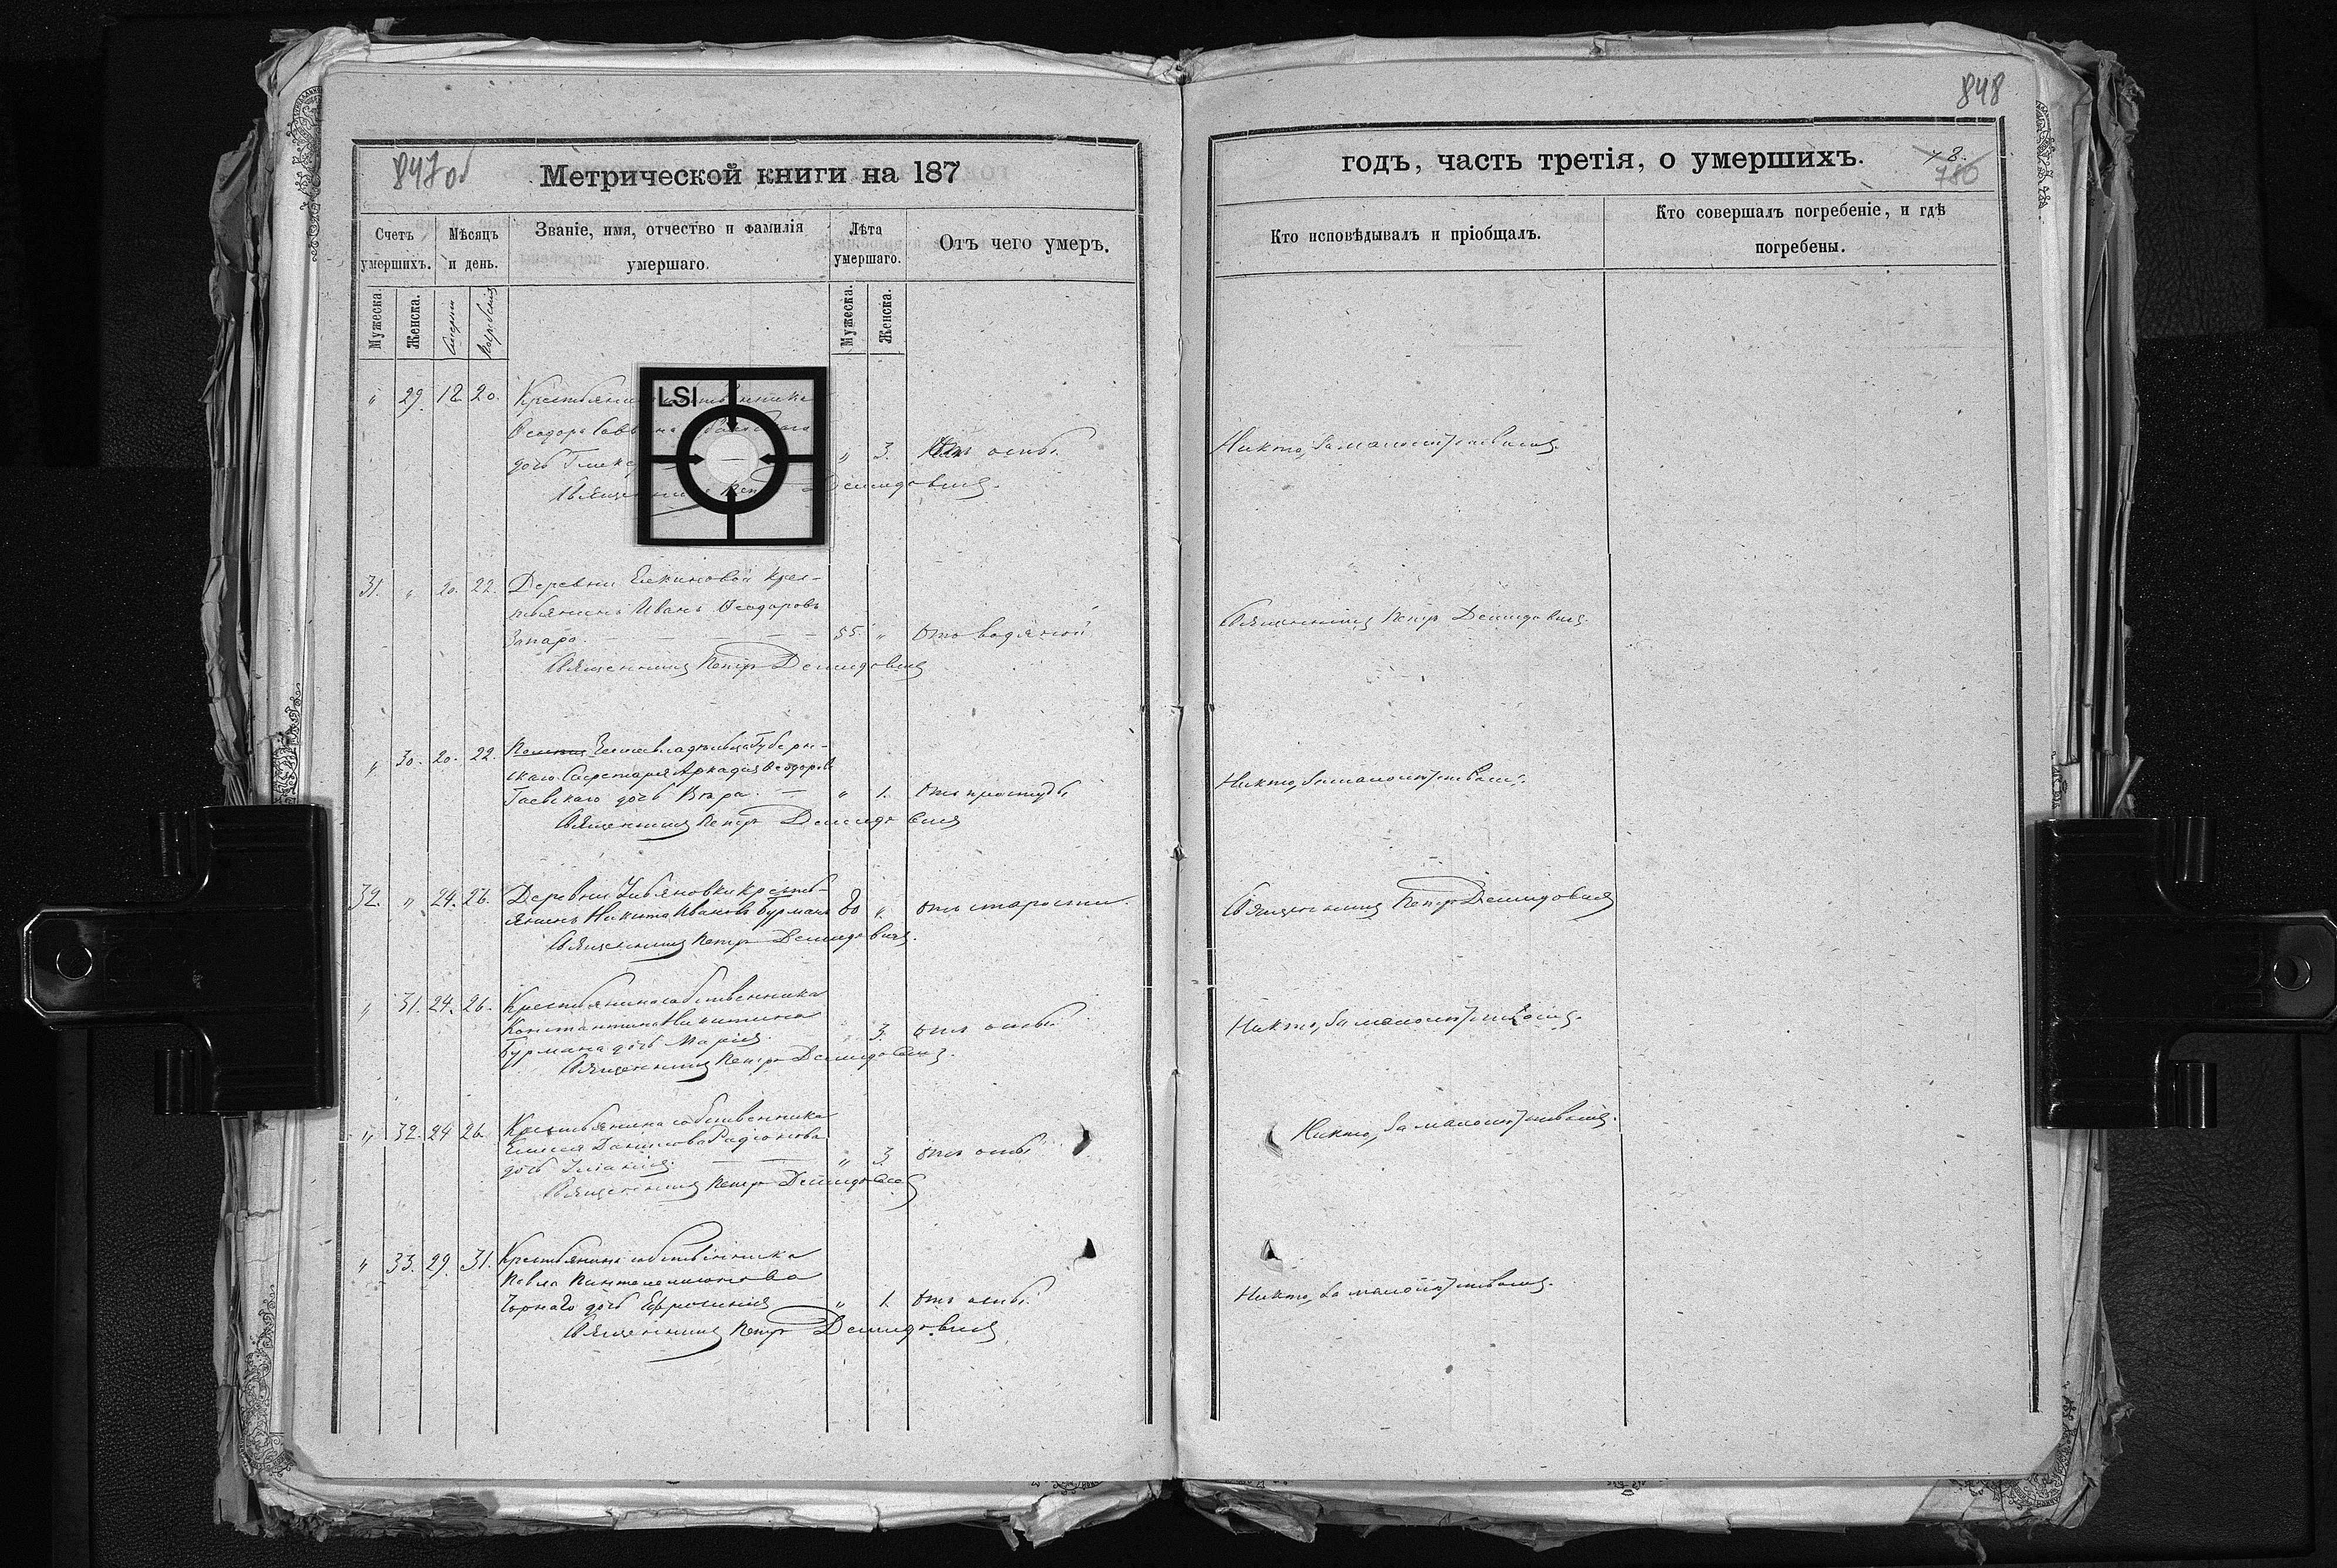 847об
Метрической книги на 187
Счетъ умершихъ.
Мѣсяцъ и день.
Званіе, имя, отчество и фамилія умершаго.
Лѣта умершаго.
Отъ чего умеръ.
Мужеска.
Женска.
Мужеска.
Женска.
LSI
" 29. 18 20.
дочь
" 3. Отъ оспы.
Демидовичъ.
31. " 20. 22. Деревни Крес-
тьянинъ Иванъ Ѳеодоровъ
Запаро. 55. " Отъ водяной
Священникъ Петръ Демидовичъ
" 30. 20. 22. Землевладѣльца Губерн-
скаго Секретаря Аркадія Ѳеодоров
Гаевскаго дочь Вѣра. " 1. Отъ простуды
Священникъ Петръ Демидовичъ
32. " 24. 26. Деревни Кресть-
янинъ Никита Ивановъ Бурманъ 80 " отъ старости.
Священникъ Петръ Демидовичъ.
" 31. 24. 26. Крестьянина собственника
Константина Никитина
Бурмана дочь Марія. 3. отъ оспы
Священникъ Петръ Демидовичъ.
" 32. 24 26. Крестьянина собственника
Данилова Радіонова
дочь " 3 отъ оспы
Священникъ Петръ Демидовичъ
" 33. 29. 31. Крестьянина собственника
Павла Пантелемонова
Чорнаго дочь Ефросинія " 1. Отъ оспы.
Священникъ Петръ Демидовичъ
848
годъ, часть третія, о умершихъ.
780
Кто исповѣдывалъ и пріобщалъ.
Кто совершалъ погребеніе, и гдѣ
погребены.
Никто, за малолѣтствомъ.
Священникъ Петръ Демидовичъ.
Никто, за малолѣтствомъ.
Священникъ Петръ Демидовичъ
Никто, за малолѣтствомъ.
Никто, за малолѣтствомъ.
Никто, за малолѣтствомъ.